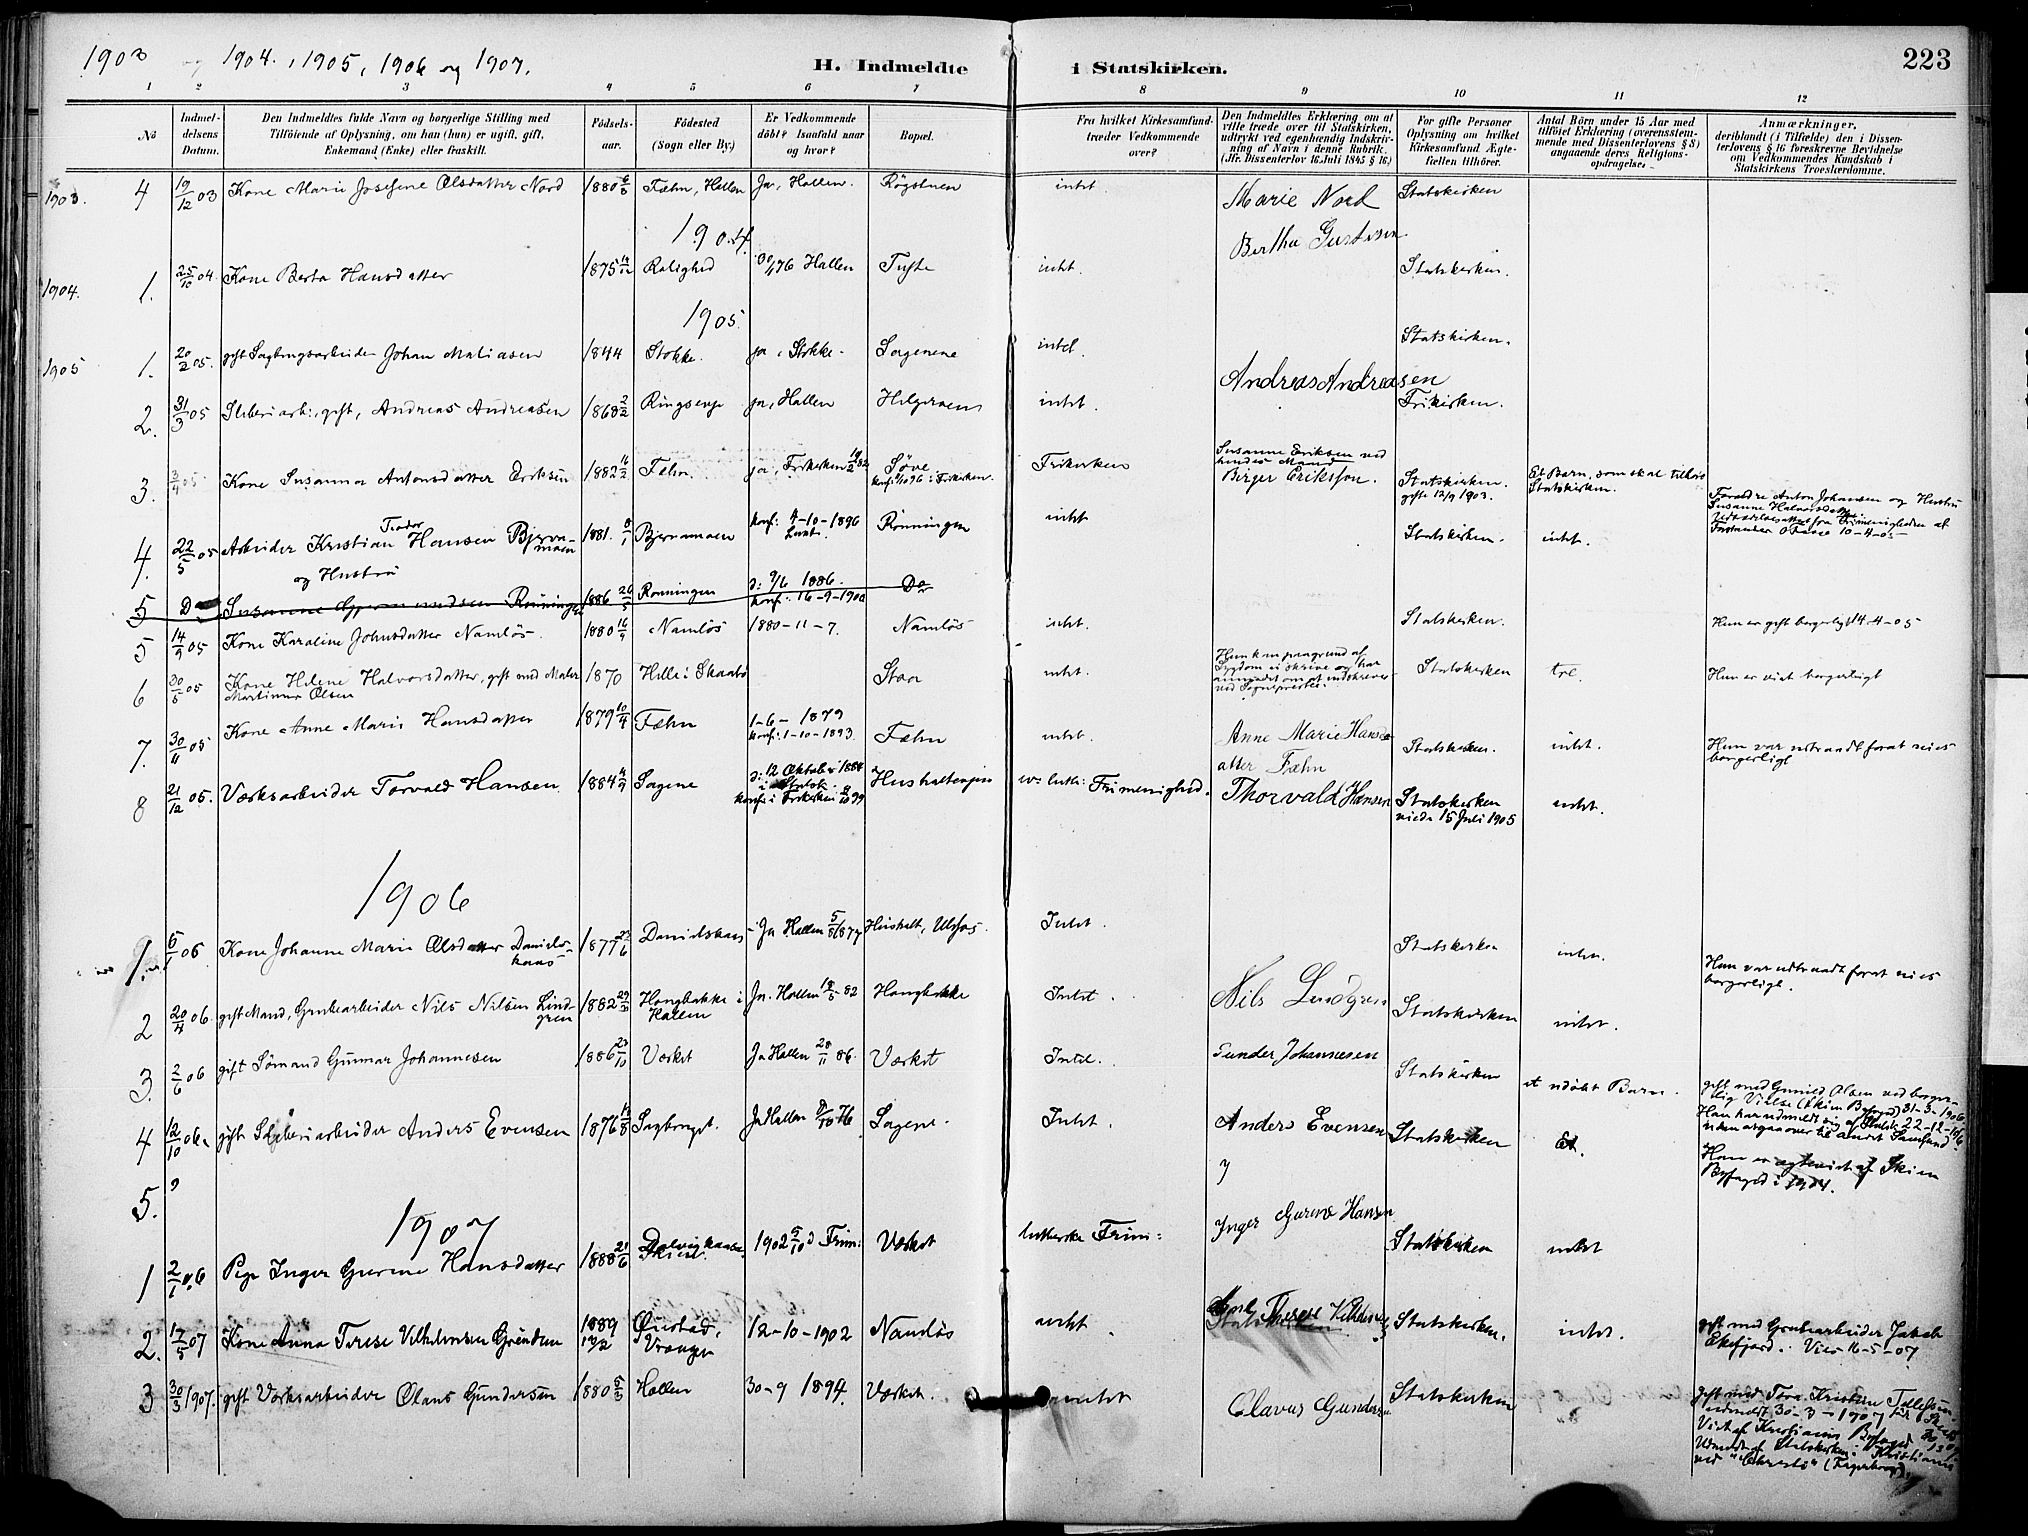 1903 og 1904, 1905, 1906 og 1907.
H. Indmeldte i Statskirken.
223
1 2 3 4 5 6 7 8 9 10 11 12
No
Indmeldelsens Datum.
Den Indmeldtes fulde Navn og borgerlige Stilling med Tilföiende af Oplysning, om han (hun) er ugift, gift, Enkemand (Enke) eller fraskilt.
Födselsaar.
Födested (Sogn eller By.)
Er Vedkommende döbt? Isaafald naar og hvor?
Bopæl.
Fra hvilket Kirkesamfund træder Vedkommende over?
Den Indmeldtes Erklæring om at ville træde over til Statskirken, udtrykt ved egenhændig Indskrivning af Navn i denne Rubrik. (Jfr. Dissenterlov 16 Juli 1845 § 16.)
For gifte Personer Oplysning om hvilket Kirkesamfund Ægtefællen tilhörer.
Antal Börn under 15 Aar med tilföiet Erklæring (overensstemmende med Dissenterlovens § 8) angaaende deres Religionsopdragelse.
Anmærkninger, deriblandt (i Tilfælde) den i Dissenterlovens § 16 foreskrevne Bevidnelse om Vedkommendes Kundskab i Statskirkens Troeslærdomme.
1903. 4 19/12 03 Kone Marie Josefine Olsdatter Nord 1880 Fæhn, Hollen Ja, Hollen. Røgstuen intet. Marie Nord Statskirken
1904
1904. 1. 25/10 04. Kone Berta Hansdatter 1875 Rolighed 76 Hollen Tufte intet. Bertha Gustavsen Statskirken.
1905
1905 1. 20/2 05. gift Sagbrugsarbeider Johan Matiasen 1844 Stokke. ja, Stokke. Sagenene intet. Statskirken.
2. 31/3 05 Sliberiarb., gift, Andreas Andreasen 1868 2/2 Ringsevje ja, Hollen intet. Andreas Andreasen Frikirken.
3. 3/4 05 Kone Susanna Antonsdatter Eriksen 1882 Fæhn ja, Frikirken Søve Frikirken Susanne Eriksen ved hendes Mand Birger Eriksson. Statskirken. gifte 12/9 1903. Et Barn, som skal tilhøre Statskirken. Forældre Anton Johansen og Hustru Susanne Halvorsdatter.
4. 22/5 05 Arbeider Kristian Teodor Hansen Bjervamoen 1881. 8/1 Bjervamoen konf: 4-10-1896 Rönningen intet Statskirken. intet.
og Hustru
5 Do Susanne Rönningen 1886 26/5 Rönningen d: 9/6 1886. konf: 16-9-1900 Do
5 14/9 05 Kone Karoline Johnsdatter Namløs. 1880 16/9 Namløs 1880-11-7. Namløs intet. Statskirken. Hun er gift borgerligt 14-4-05
6 20/5 05 Kone Helene Halvorsdatter, gift med Maler Martinus Olsen 1870 Helle i Skaatö Staa intet. Statskirken tre. Hun er viet borgerligt
7. 30/11 05 Kone Anne Marie Hansdatter 1879 10/4 Fæhn 1-6-1879 konf: 1-10-1893. Fæhn intet. Anne Marie Hansdatter Fæhn Statskirken. intet. Hun var udtraadt forat vies borgerligt
8 21/12 05. Værksarbeider Torvald Hansen 1884 4/9 Sagene d: 12 Oktober 1884 i Statsk. konf: i Frikirken 8/10 99 ev. luth: Frimenighed. Thorvald Hansen Statskirken viede 15 Juli 1905 intet.
1906
1. 5/1 06 Kone Johanne Marie Olsdatter Danielskaas 1877 23/6 Danielskaas Ja Hollen 5/8 1877 Husholt, Ulefos. Intet. Statskirken intet. Hun var udtraadt forat vies borgerligt.
2 20/4 06. gift Mand, Grubearbeider Nils Nilsen Lindgren 1882 Haugbakke i Hollen Ja. Hollen 82 Haugbakke Intet. Nils Lindgren Statskirken intet.
3. 2/6 06 gift Sömand Gunnar Johannesen 1886 23/10 Værket Ja Hollen 28/11 86. Værket Intet. Gunder Johannesen Statskirken et udöbt Barn. gift med Gunild Olsen ved borgerlig Vielse (Skien Byfoged) 31-3-1906.
4 12/10 06. gift Sliberiarbeider Anders Evensen 1876 Sagbruget. Ja Hollen 8/10 76 Sagene. Intet. Anders Evensen Statskirken Et. Han er ægteviet af Skien Byfoged i 1904.
5. ?
1907
1 2/1 06 Pige Inger Gurine Hansdatter 1888 21/6 1902 5/10 i Frim: Værket lutherske Frim: Inger Gurine Hansen Statskirken intet
2. 17/5 07 Kone Anna Terese Vilhelmsen Gründsen 1889 13/2 12-10-1902 Namløs intet. Statskirken. intet. gift med Grubearbeider Jakob Ekefjord. Viet 16-5-07
3 30/3 1907. gift Værksarbeider Olaus Gundersen 1880 5/3 Hollen 30-9 1894. Værket. intet Olavus Gundersen Statskirken gift med Tora Kristine Tollefsen